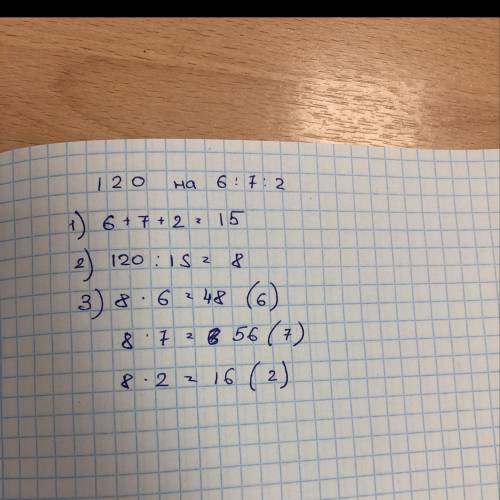 120 на 6:7:2
1) 6+7+2=15
2) 120:15=8
3) 8·6=48 (6)
8·7=56 (7)
8·2=16 (2)